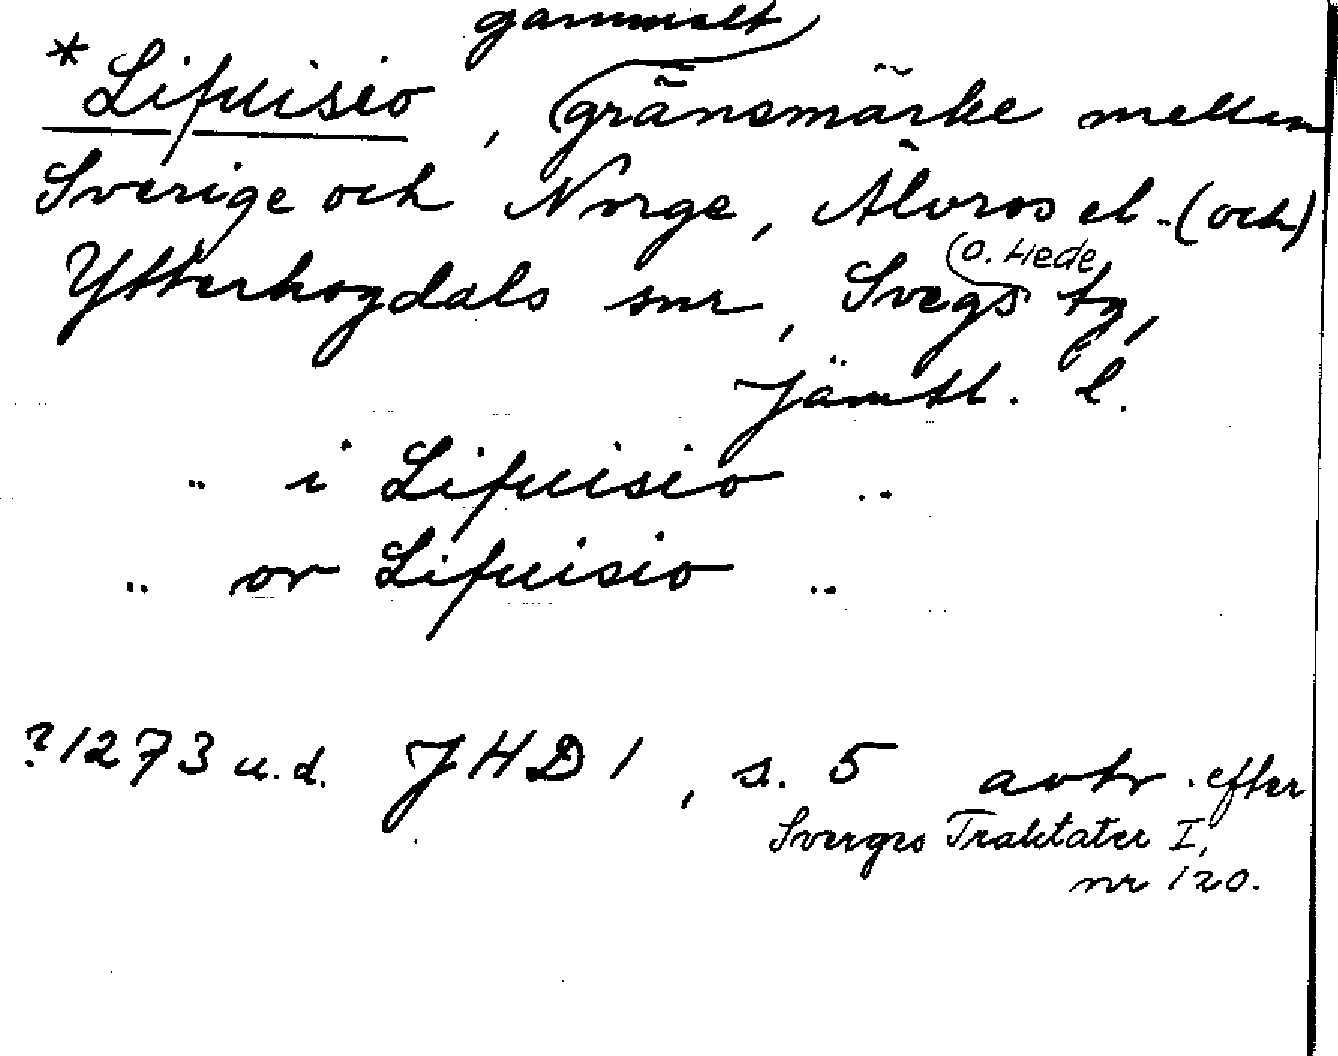 gammalt
* Lifuisio, gränsmärke mellan
Sverige och Norge, Älvros el. (och)
o. Hede
Ytterhogdals snr, Svegs tg,
Jämtl. l.
" i Lifuisio ..
" or Lifuisio ..
? 1273 u.d. JHD 1, s. 5 avtr. efter
Sverges Traktater I,
nr 120.